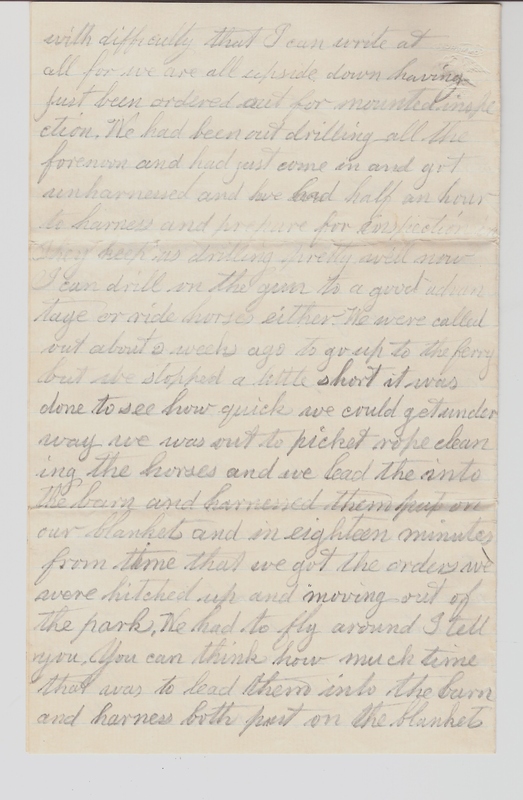 with difficulty that I can write at
all for we are all upside down having
just been ordered out for mounted inspe
ction. We had been out drilling all the
forenoon and had just come in and got
unharnessed and we had half an hour
to harness and prepare for inspection
They keep us drilling pretty well now
I can drill on the gun to a good advan
tage or ride horses either. We were called
out about a week ago to go up to the ferry
but we stopped a little short it was
done to see how quick we could get under
way we was out to picket rope clean
ing the horses and we lead the into
the barn and harnessed them put on
our blankets and in eighteen minutes
from time that we got the orders we
were hitched up and moving out of
the park. We had to fly around I tell
you. You can think how much time
that was to lead them into the barn
and harness both put on the blankets